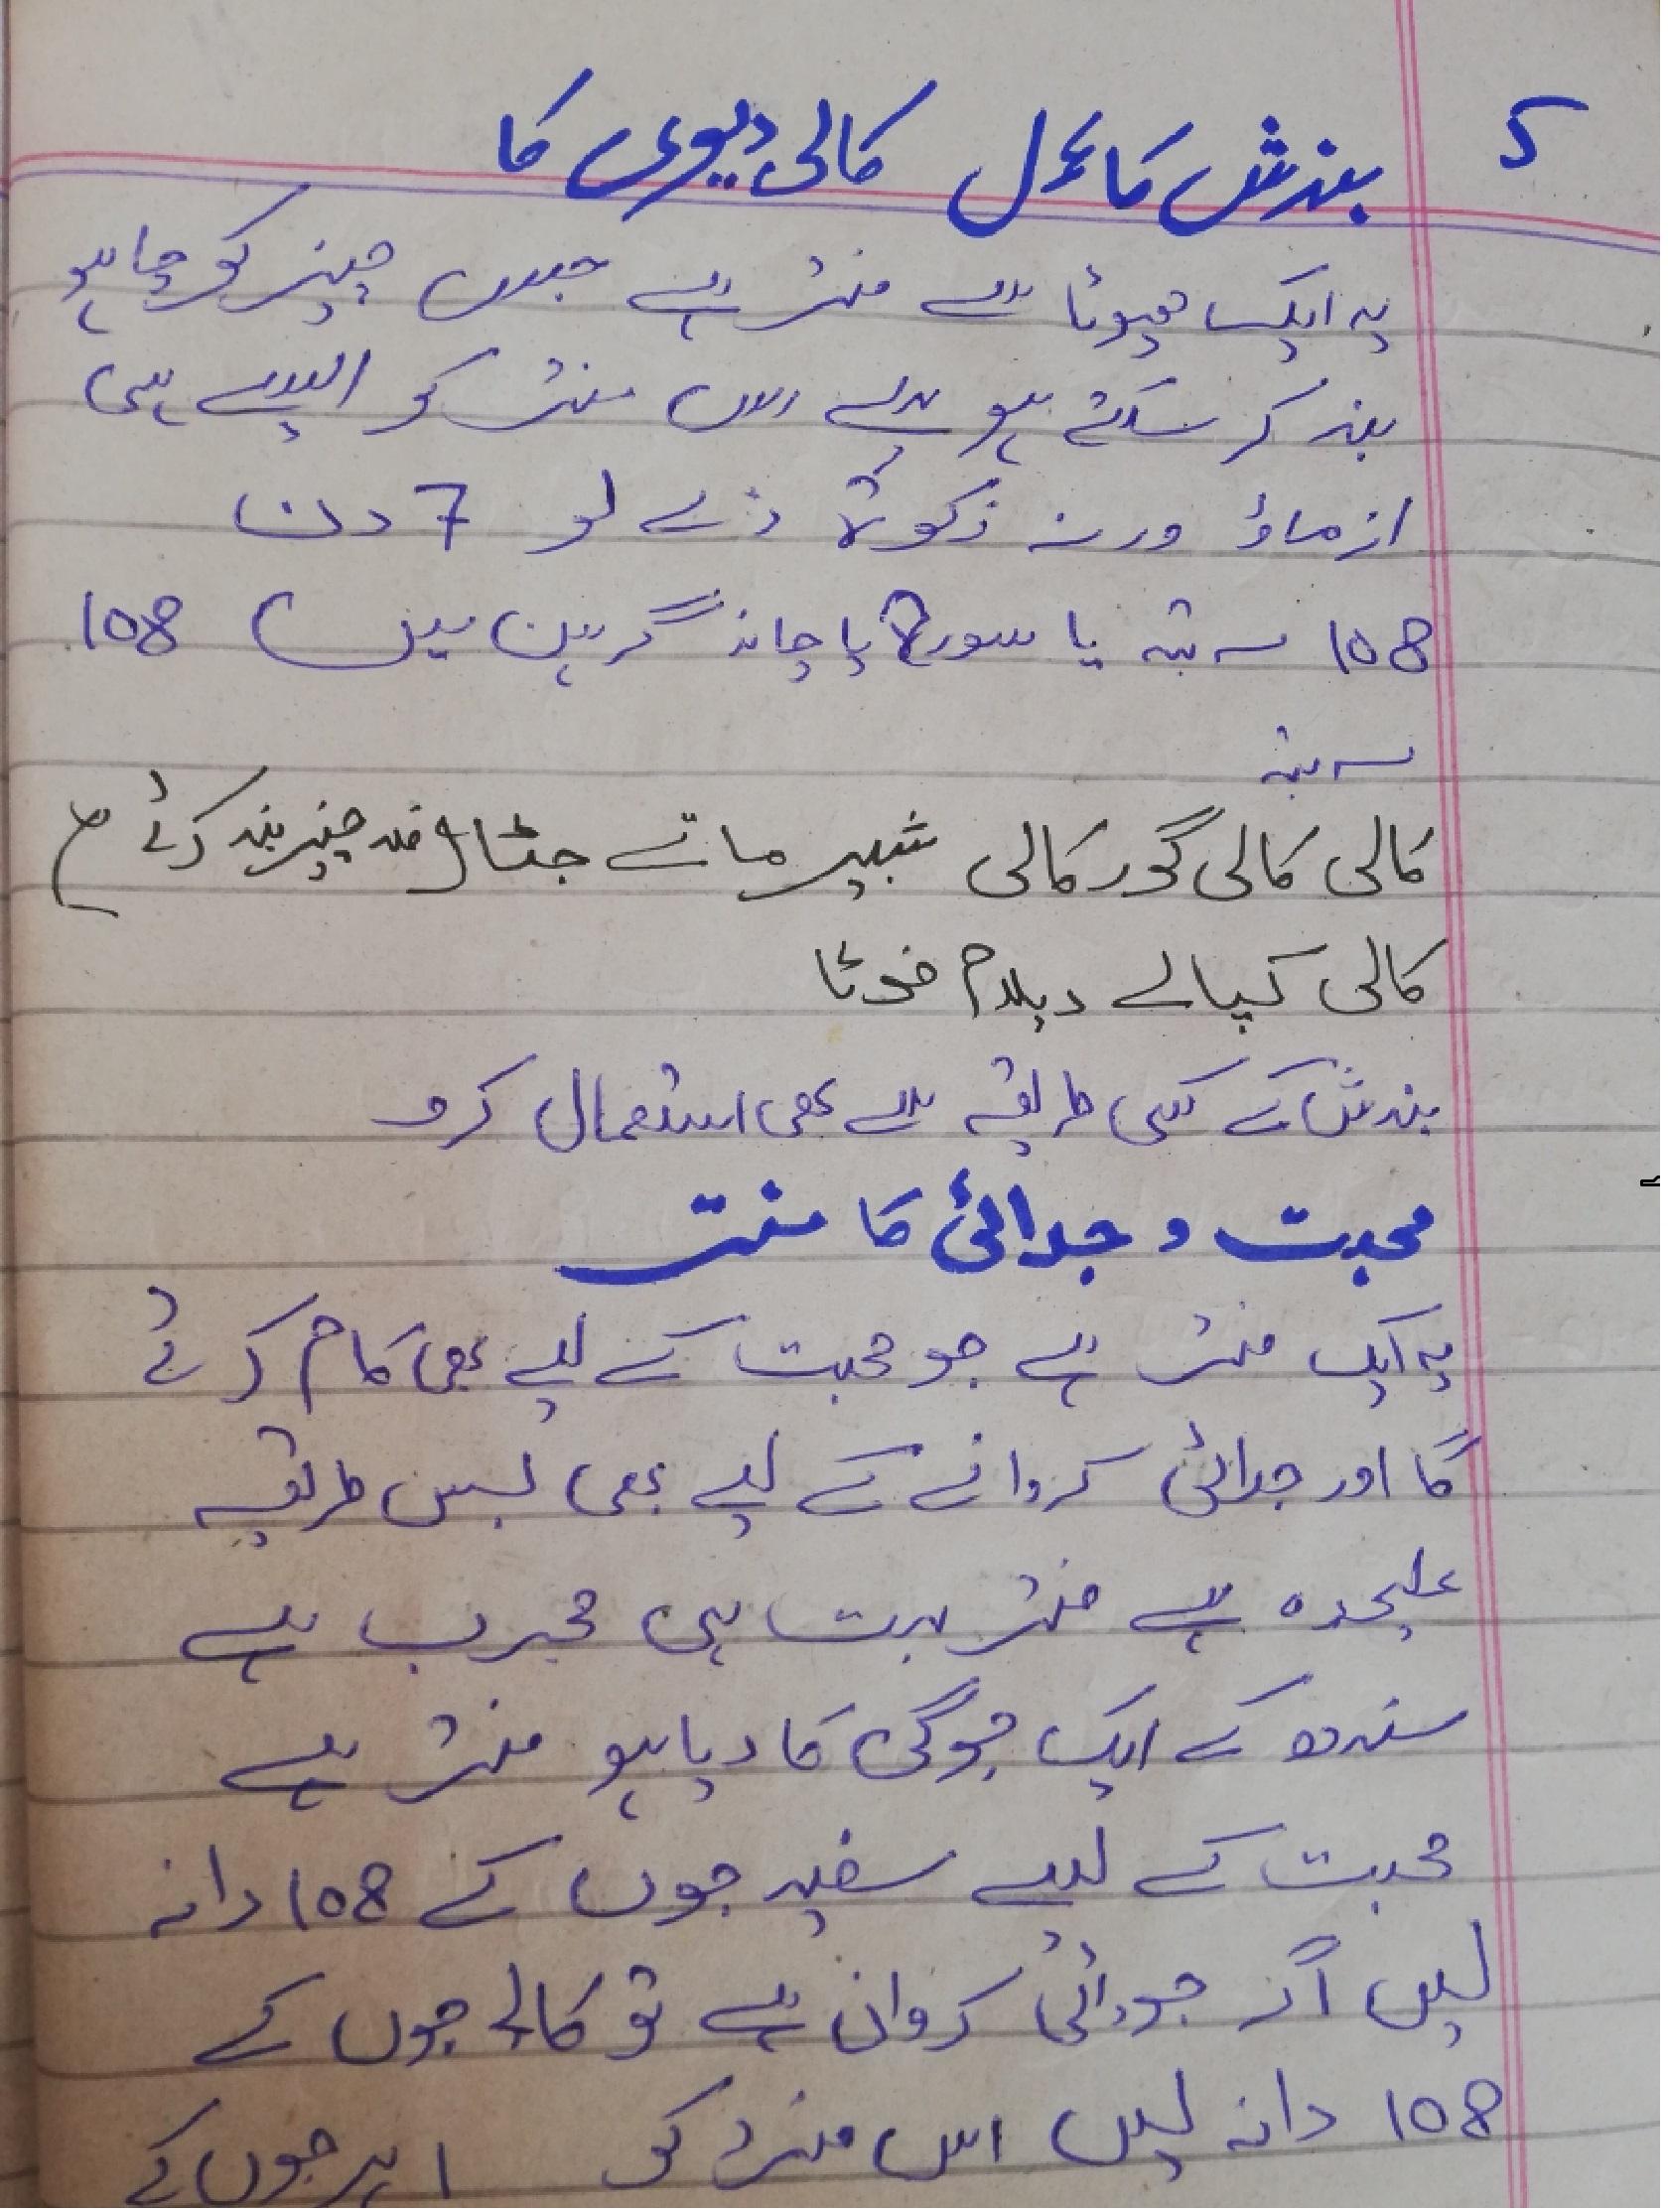 5
بندش کا عمل کالی دیوی کا
یہ ایک چھوٹا سے منتر ہے جس چیز کو چاہو
بند کر سکتے ہو بس اس منتر کو ایسے ہی
ازماؤ ورنہ زکوٰۃ دے لو 7 دن
108 مرتبہ یا سورج یا چاند گرہن میں 108
مرتبہ
کالی کالی گور کالی شبیر ماتے جٹا فلاں چیز بند کرئے
کالی کپالے
بندش کے کسی طریقہ سے بھی استعمال کرو
محبت و جدائی کا منتر
یہ ایک منتر ہے جو محبت کے لیے بھی کام کرئے
گا اور جدائی کروانے کے لیے بھی بس طریقہ
علیحدہ ہے منتر بہت ہی مجرب ہے
سندھ کے ایک جوگی کا دیا ہو منتر ہے
محبت کے لیے سفید جوں کے 108 دانہ
لیں اگر جودائی کروانی ہے تو کالے جوں کے
108 دانہ لیں اس منتر کو ا ہر جوں کے